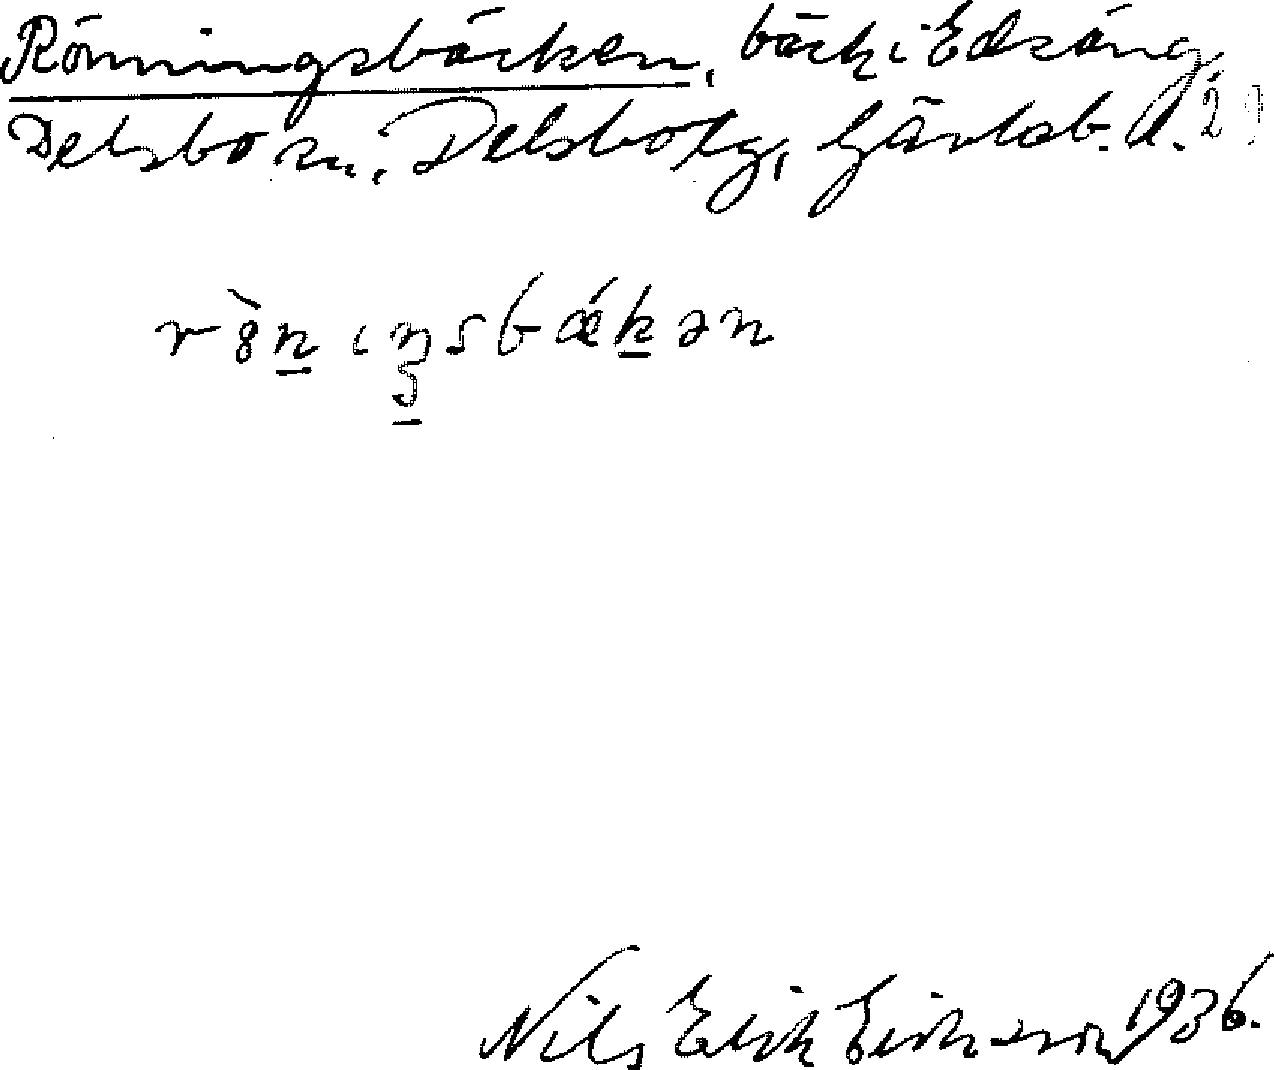 Rönningsbäcken, bäck i Edsäng,
Delsbo sn, Delsbo tg, Gävleb. l.
rö̀nıŋsbǽkən
Nils Erik Eriksson 1936.